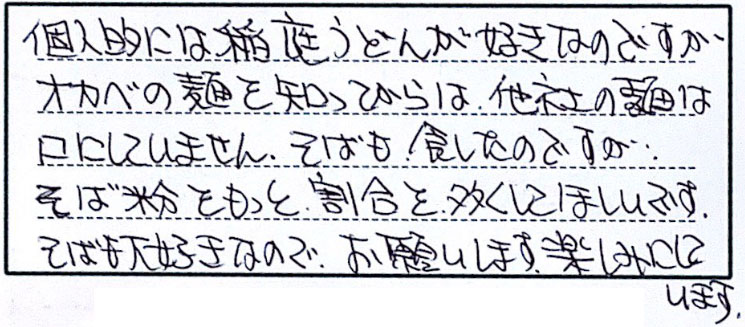 個人的には稲庭うどんが好きなのですが、
オカベの麺を知ってからは、他社の麺は
口にしていません。そばも食したのですが、
そば粉をもっと割合を多くしてほしいです。
そばも大好きなので、お願いします。楽しみにして
います。